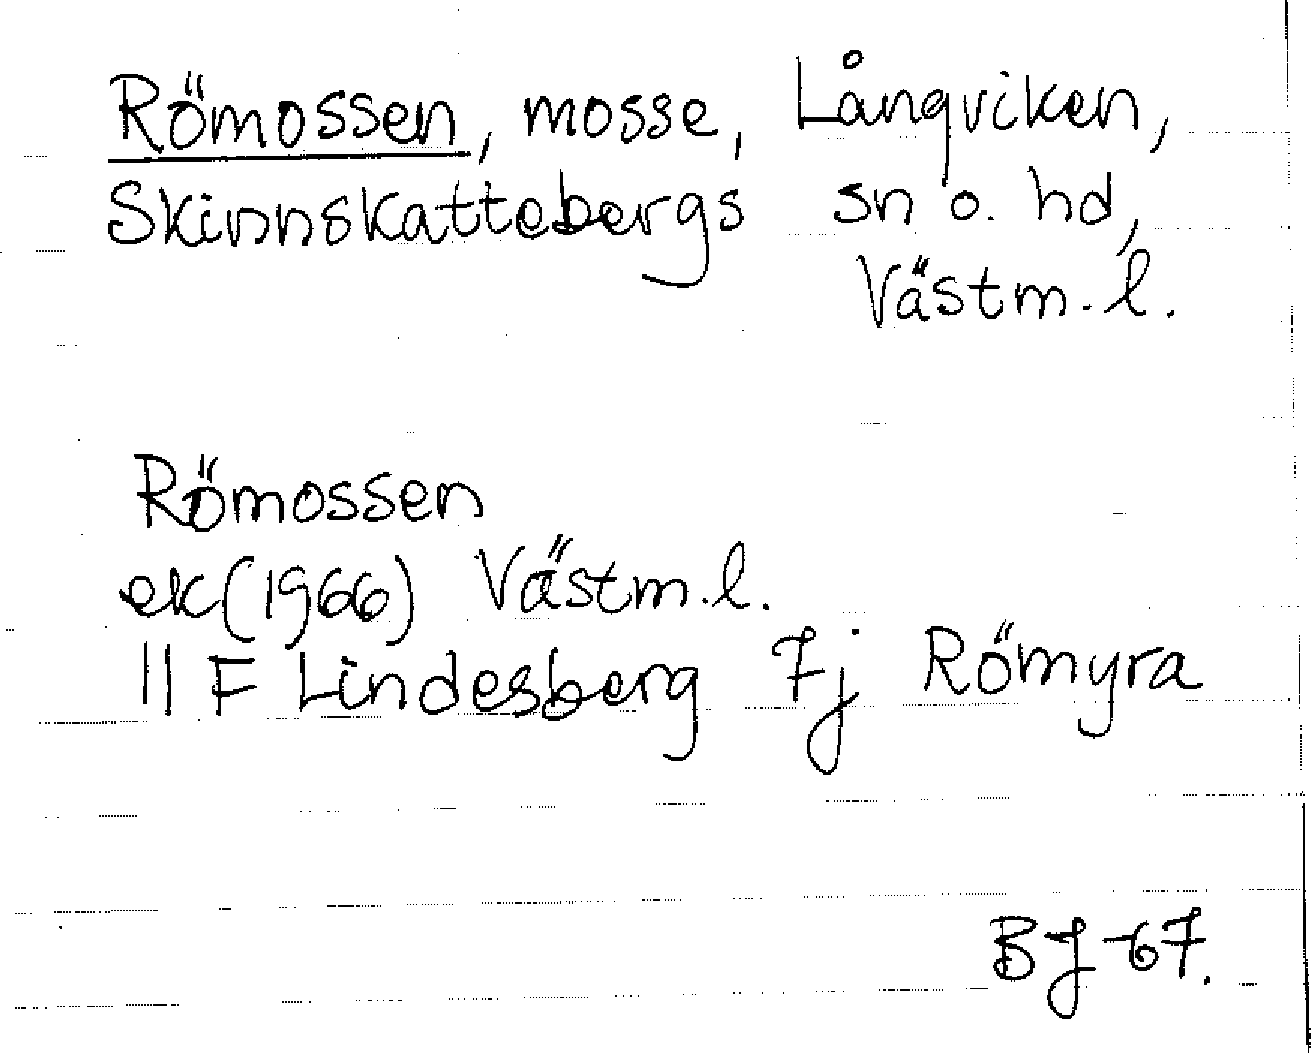 Römossen, mosse, Långviken,
Skinnskattebergs sn o. hd,
Västm. l.
Römossen
ek (1966) Västm. l.
11 F Lindesberg 7j Römyra
BJ -67.